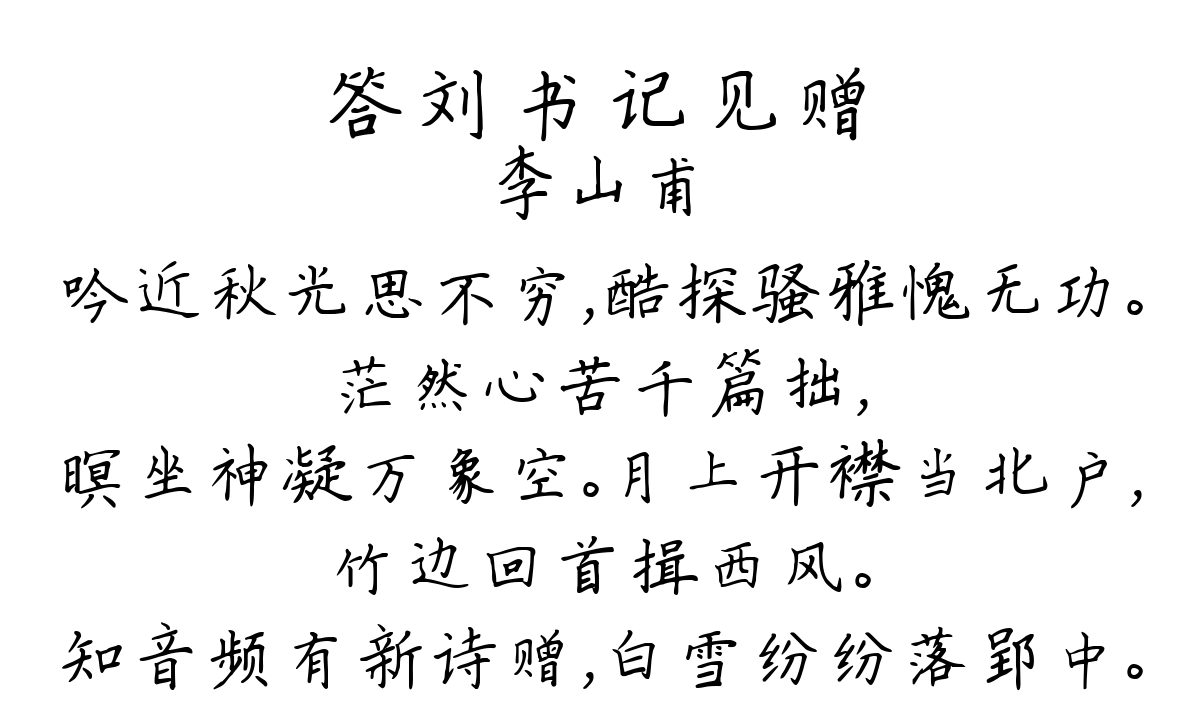 答刘书记见赠
李山甫
吟近秋光思不穷,酷探骚雅愧无功。
茫然心苦千篇拙,
暝坐神凝万象空。月上开襟当北户,
竹边回首揖西风。
知音频有新诗赠,白雪纷纷落郢中。